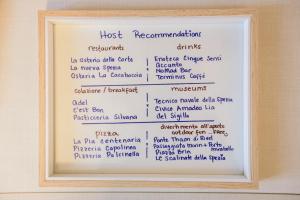 Host Recommendations
restaurants
La Osteria della Corte
La nuova Spezia
Osteria La Corabaccia
drinks
Enoteca Cinque Sensi
Accanto
NoMad Bar
Terminus Caffè
colazione / breakfast
Adel
C'est Bon
Pasticceria Silvana
museums
Tecnico navale della Spezia
Civico Amedeo Lia
del Sigillo
pizza
La Pia centenaria
Pizzeria Capolinea
Pizzeria Pulcinella
divertimento all'aperto
outdoor fun
Ponte Thaon di Revel
Passeggiata Morin + Porto
Mirabello
Piazza Brin
Le Scalinate della Spezia